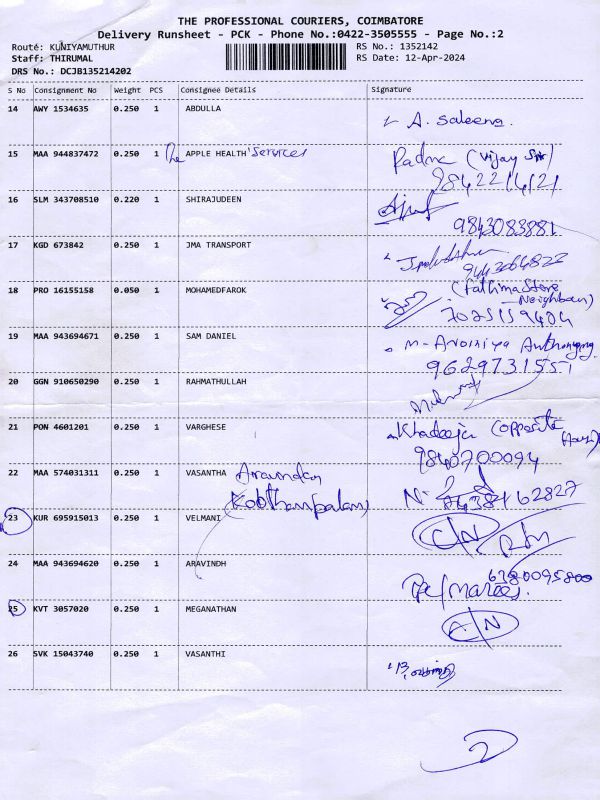 THE PROFESSIONAL COURIERS, COIMBATORE
Delivery Runsheet - PCK - Phone No.:0422-3505555 - Page No.:2
Route: KUNIYAMUTHUR RS No.: 1352142
Staff: THIRUMAL RS Date: 12-Apr-2024
DRS No.: DCJB135214202
S No Consignment No Weight PCS Consignee Details Signature
14 AWY 1534635 0.250 1 ABDULLA A. Saleena.
15 MAA 944837472 0.250 1 The APPLE HEALTH Services Padma (Vijay
16 SLM 343708510 0.220 1 SHIRAJUDEEN
9843083881
17 KGD 673842 0.250 1 JMA TRANSPORT
18 PRO 16155158 0.050 1 MOHAMEDFAROK (Fathima Store
Neighbour)
19 MAA 943694671 0.250 1 SAM DANIEL
9629731551
20 GGN 910650290 0.250 1 RAHMATHULLAH
21 PON 4601201 0.250 1 VARGHESE Khadeeja (opposite
9840700094
22 MAA 574031311 0.250 1 VASANTHA Aravindan
23 KUR 695915013 0.250 1 VELMANI C/N
24 MAA 943694620 0.250 1 ARAVINDH
6380095800
25 KVT 3057020 0.250 1 MEGANATHAN
26 SVK 15043740 0.250 1 VASANTHI
2